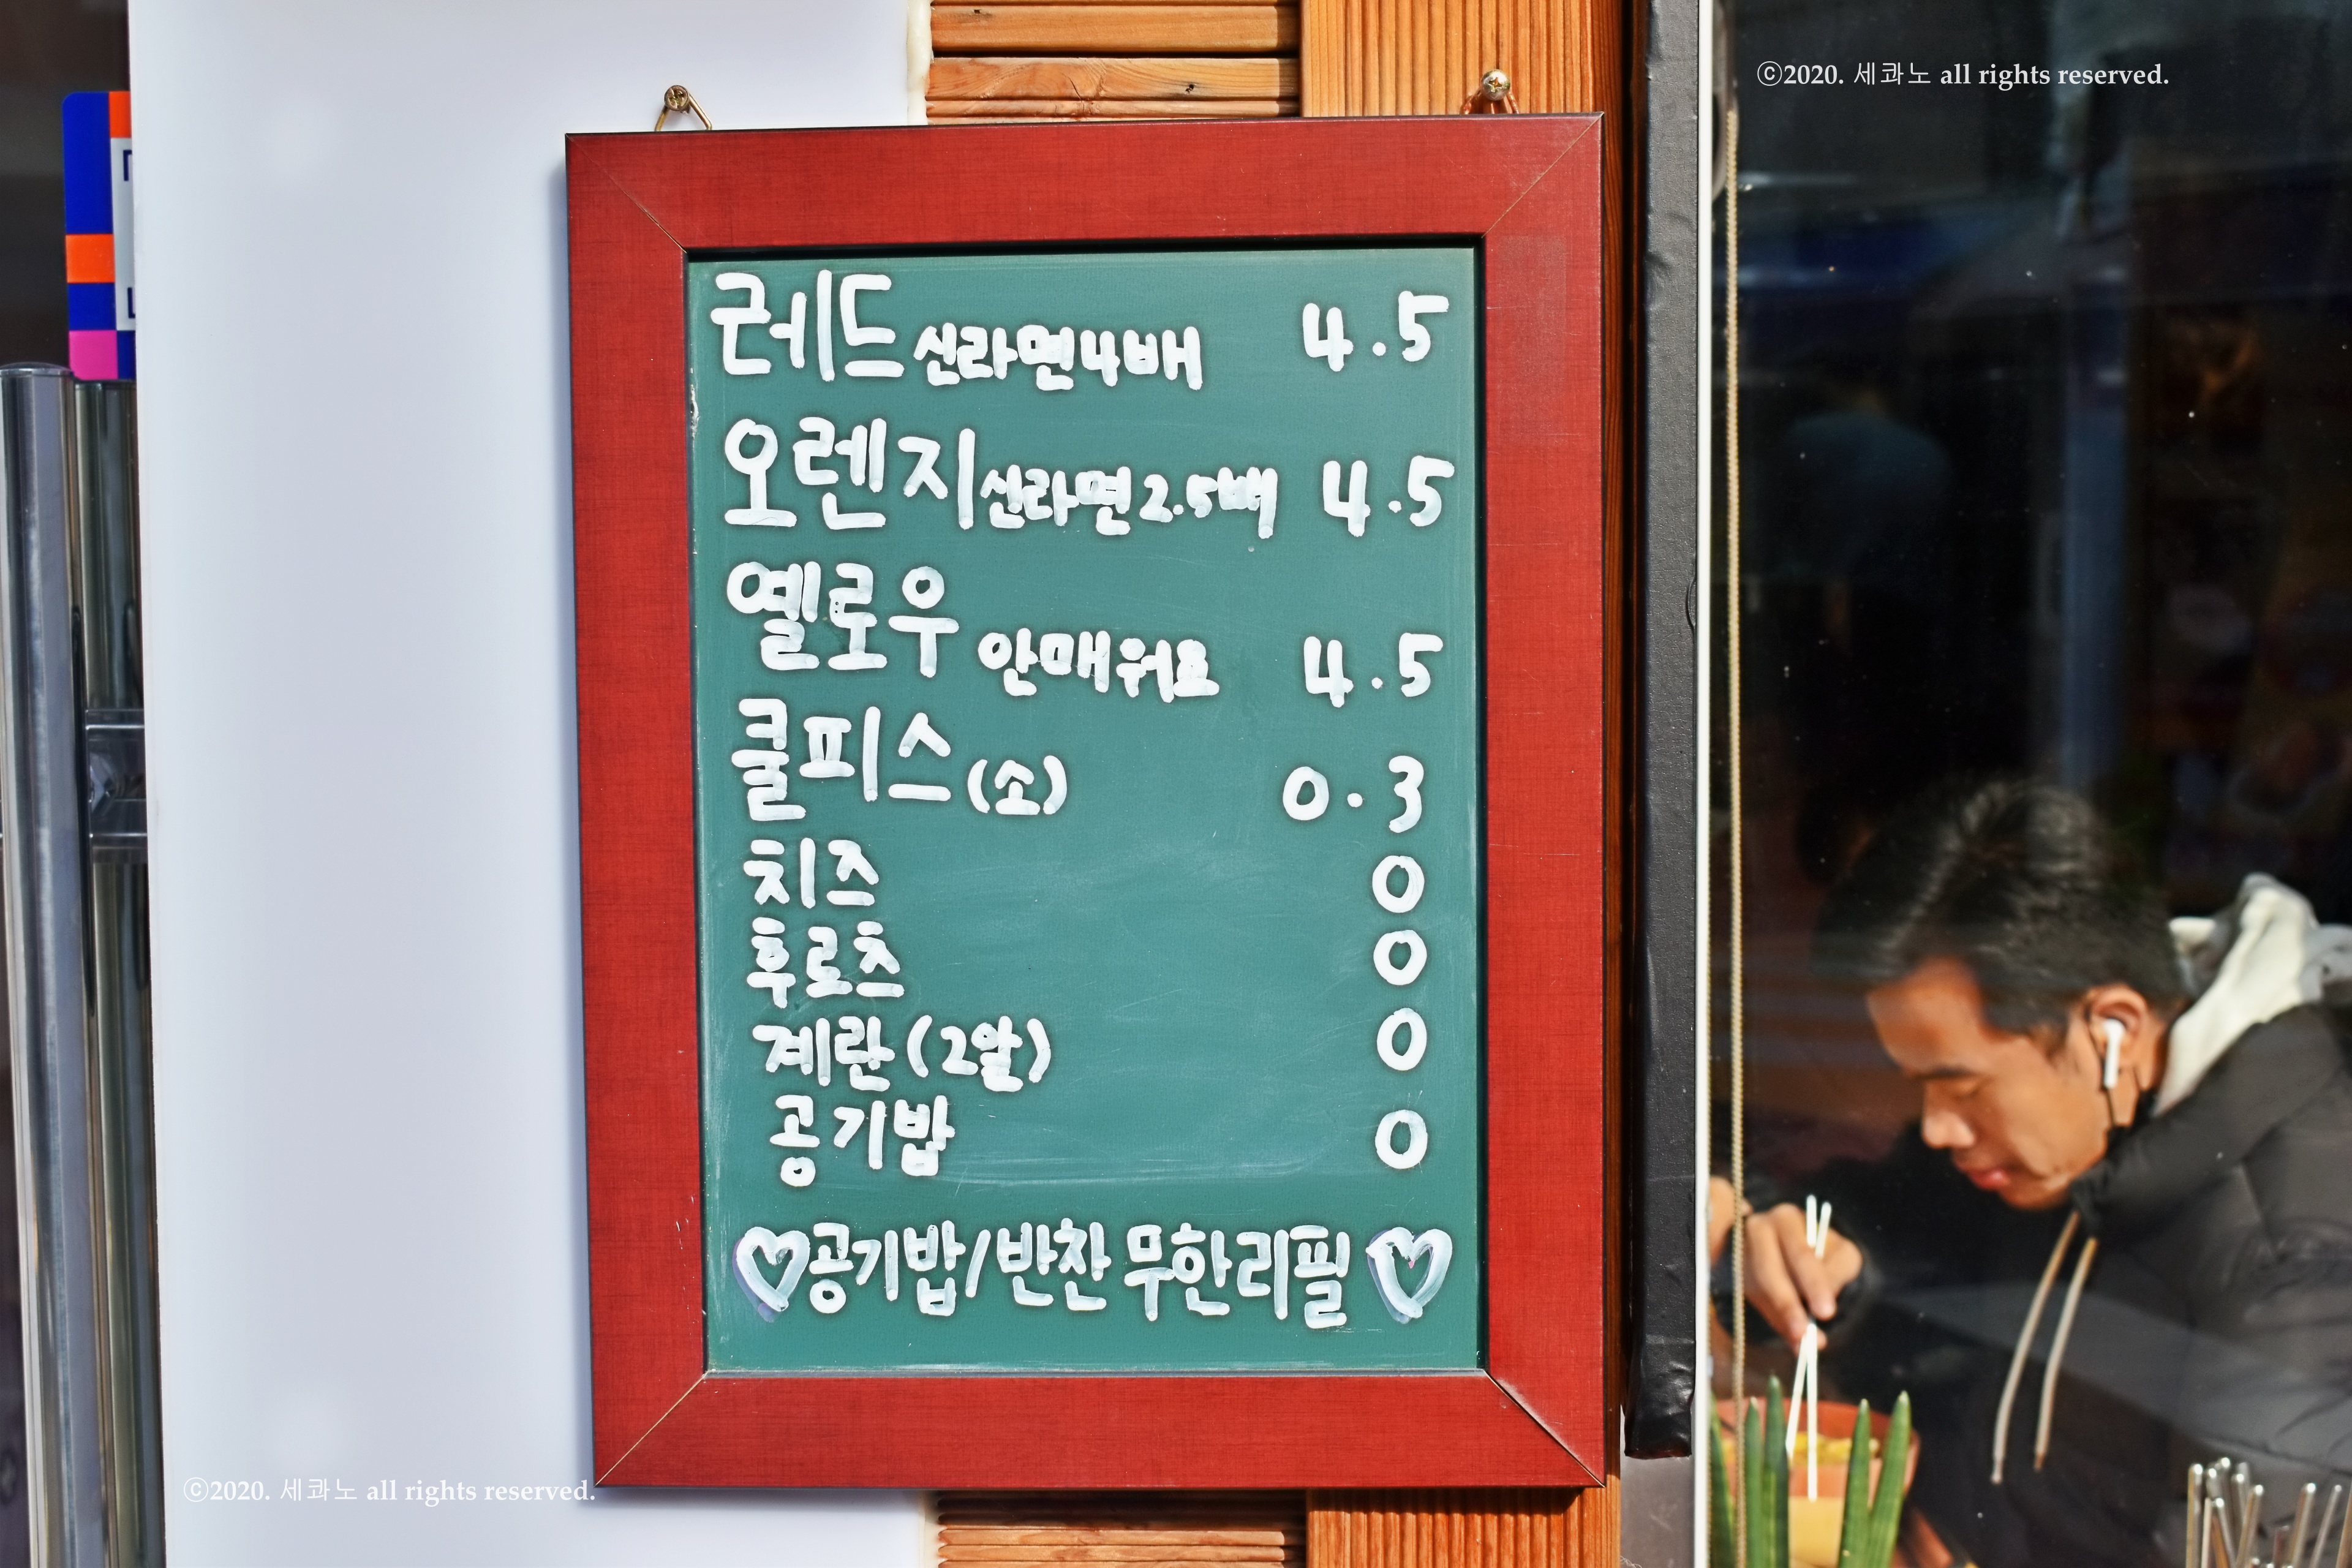 ⓒ2020. 세콰노 all rights reserved.
레드 신라면4배 4.5
오렌지 신라면2.5배 4.5
옐로우 안매워요 4.5
쿨피스 (소) 0.3
치즈 0
후로츠 0
계란 (2알) 0
공기밥 0
♡공기밥/반찬 무한리필♡
ⓒ2020. 세콰노 all rights reserved.